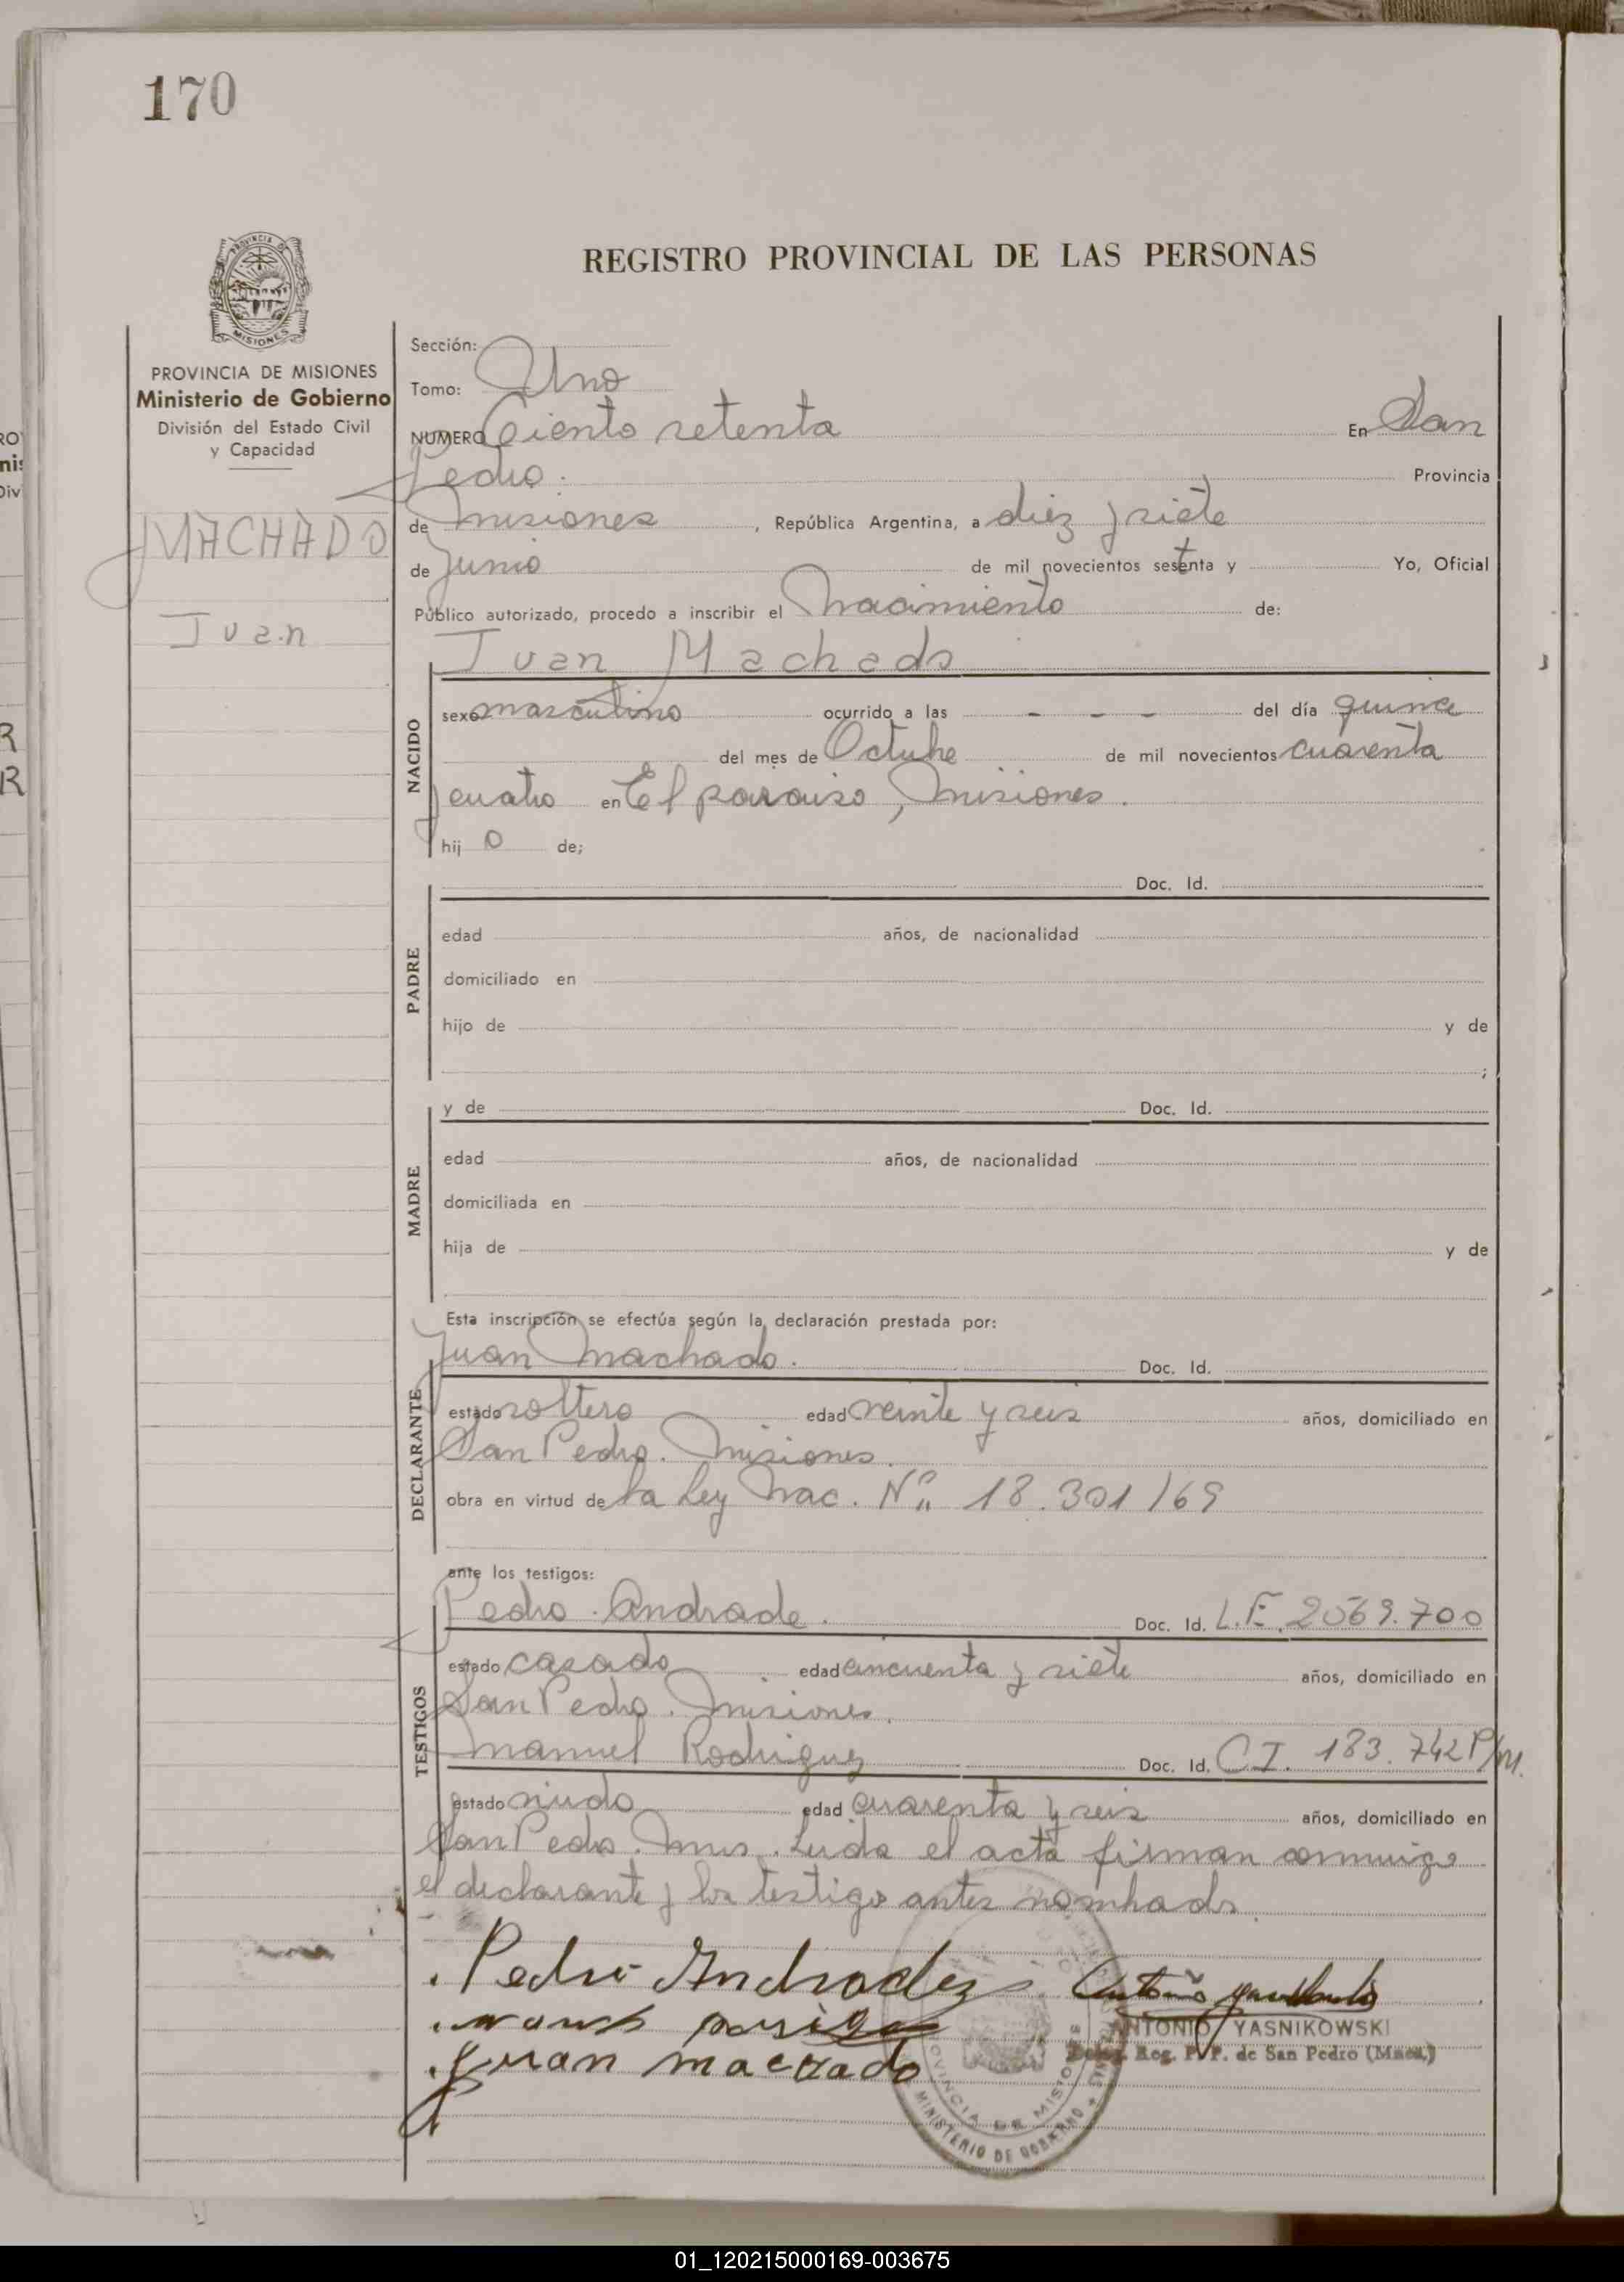 170
REGISTRO PROVINCIAL DE LAS PERSONAS
PROVINCIA DE MISIONES
Ministerio de Gobierno
División del Estado Civil
y Capacidad
MACHADO
Juan
Sección:
Tomo: Uno
NUMERO Ciento setenta En San
Pedro. Provincia
de Misiones, República Argentina, a diez y siete
de Junio de mil novecientos sesenta y Yo, Oficial
Público autorizado, procedo a inscribir el Nacimiento de:
Juan Machado
NACIDO
sexo masculino ocurrido a las - - - del día quince
del mes de Octubre de mil novecientos cuarenta
y cuatro en El paraiso, Misiones.
hij o de;
Doc. Id.
PADRE
edad años, de nacionalidad
domiciliado en
hijo de y de
;
MADRE
y de Doc. Id.
edad años, de nacionalidad
domiciliada en
hija de y de
Esta inscripción se efectúa según la declaración prestada por:
DECLARANTE
Juan Machado. Doc. Id.
estado soltero edad veinte y seis años, domiciliado en
San Pedro. Misiones.
obra en virtud de la Ley Nac. Nº 18.301/69
ante los testigos:
TESTIGOS
Pedro Andrade. Doc. Id. L.E. 2569.700
estado casado edad cincuenta y siete años, domiciliado en
San Pedro. Misiones.
Manuel Rodriguez Doc. Id. C.I. 183.742 P/M.
estado viudo edad cuarenta y seis años, domiciliado en
San Pedro. Mnes. Leida el acta firman conmigo
el declarante y los testigos antes nombrados.
Pedro Andradez
Juan macado
ANTONIO YASNIKOWSKI
Reg. P. P. de San Pedro (Mnes.)
PROVINCIA DE MISIONES
MINISTERIO DE GOBIERNO
01_120215000169-003675